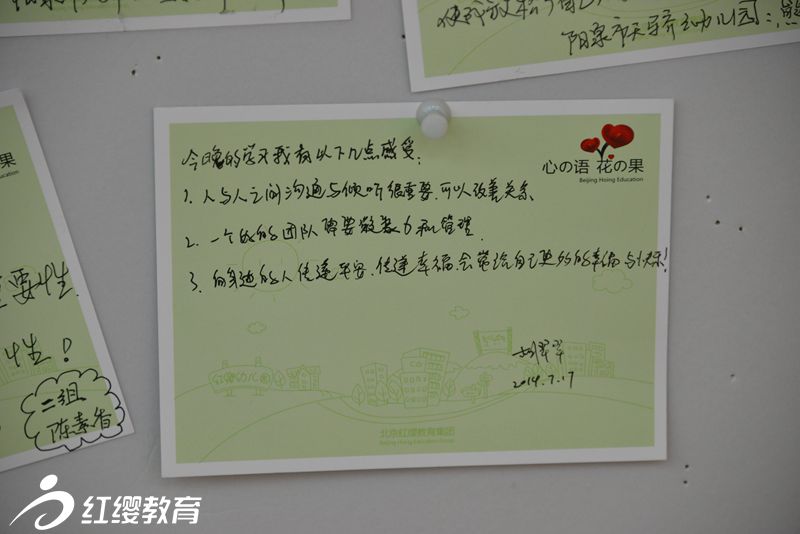 阳泉市天骄幼儿园:
心の语 花の果
Beijing Hoing Education
今晚的学习我有以下几点感受:
1. 人与人之间沟通与倾听很重要,可以改善关系
2. 一个好的团队需要凝聚力和管理
3. 向身边的人传递平安、传递幸福,会带给自己更多的幸福与快乐!
2014.7.17
红缨幼儿园
北京红缨教育集团
Beijing Hoing Education Group
の果
Education
重要性
性!
二组
陈素香
红缨教育